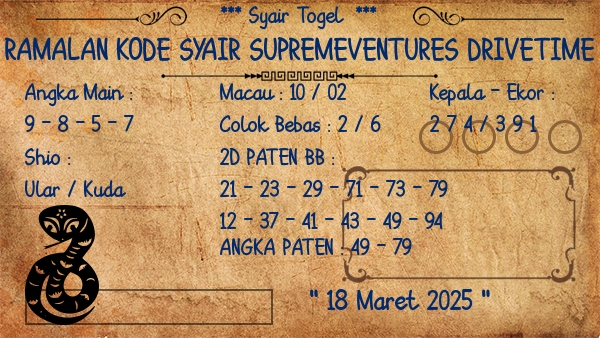 *** Syair Togel ***
RAMALAN KODE SYAIR SUPREMEVENTURES DRIVETIME
Angka Main :
9 - 8 - 5 - 7
Shio :
Ular / Kuda
Macau : 10 / 02
Colok Bebas : 2 / 6
2D PATEN BB :
21 - 23 - 29 - 71 - 73 - 79
12 - 37 - 41 - 43 - 49 - 94
ANGKA PATEN : 49 - 79
Kepala - Ekor :
2 7 4 / 3 9 1
" 18 Maret 2025 "